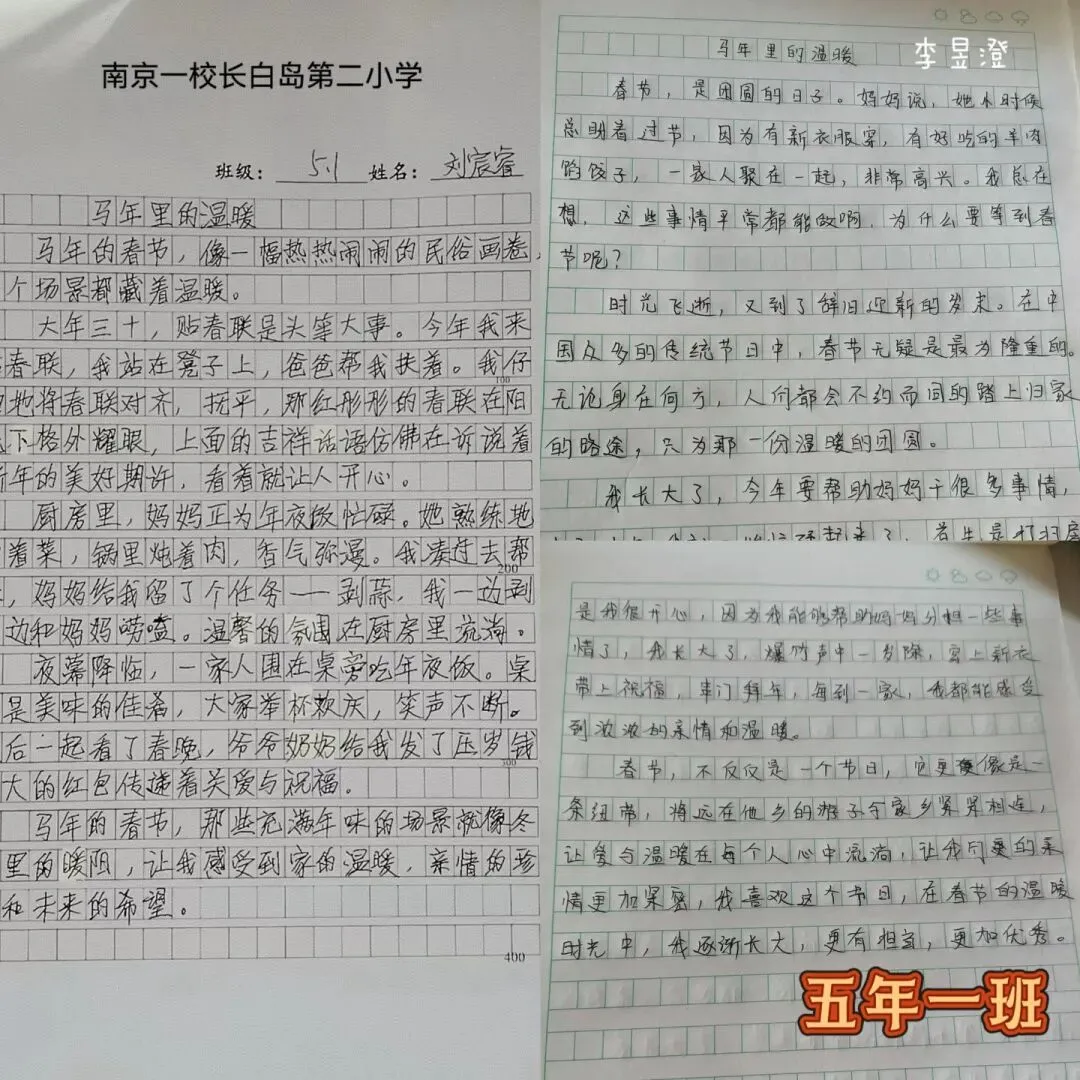 南京一校长白岛第二小学
班级：5.1 姓名：刘宸睿
马年里的温暖
马年的春节，像一幅热热闹闹的民俗画卷，
个场景都藏着温暖。
大年三十，贴春联是头等大事。今年我来
春联，我站在凳子上，爸爸帮我扶着。我仔
地将春联对齐，抚平，那红彤彤的春联在阳
下格外耀眼，上面的吉祥话语仿佛在诉说着
年的美好期许，看着就让人开心。
厨房里，妈妈正为年夜饭忙碌。她熟练地
着菜，锅里炖着肉，香气弥漫。我凑过去帮
，妈妈给我留了个任务——剥蒜，我一边剥
边和妈妈唠嗑。温馨的氛围在厨房里流淌。
夜幕降临，一家人围在桌旁吃年夜饭。桌
是美味的佳肴，大家举杯欢庆，笑声不断。
后一起看了春晚，爷爷奶奶给我发了压岁钱
大的红包传递着关爱与祝福。
马年的春节，那些充满年味的场景就像冬
里的暖阳，让我感受到家的温暖，亲情的珍
和未来的希望。
100
200
300
400
李昱澄
马年里的温暖
春节，是团圆的日子。妈妈说，她小时候
总盼着过节，因为有新衣服穿，有好吃的羊肉
馅饺子，一家人聚在一起，非常高兴。我总在
想，这些事情平常都能做啊，为什么要等到春
节呢？
时光飞逝，又到了辞旧迎新的岁末。在中
国众多的传统节日中，春节无疑是最为隆重的。
无论身在何方，人们都会不约而同的踏上归家
的路途，只为那一份温暖的团圆。
我长大了，今年要帮助妈妈干很多事情，
起来了，首先是打扫房
是我很开心，因为我能够帮助妈妈分担一些事
情了，我长大了，爆竹声中一岁除，穿上新衣
带上祝福，串门拜年，每到一家，我都能感受
到浓浓的亲情和温暖。
春节，不仅仅是一个节日，它更像是一
条纽带，将远在他乡的游子与家乡紧紧相连，
让爱与温暖在每个人心中流淌，让我们更的亲
情更加紧密，我喜欢这个节日，在春节的温暖
时光中，我逐渐长大，更有担当，更加优秀。
五年一班